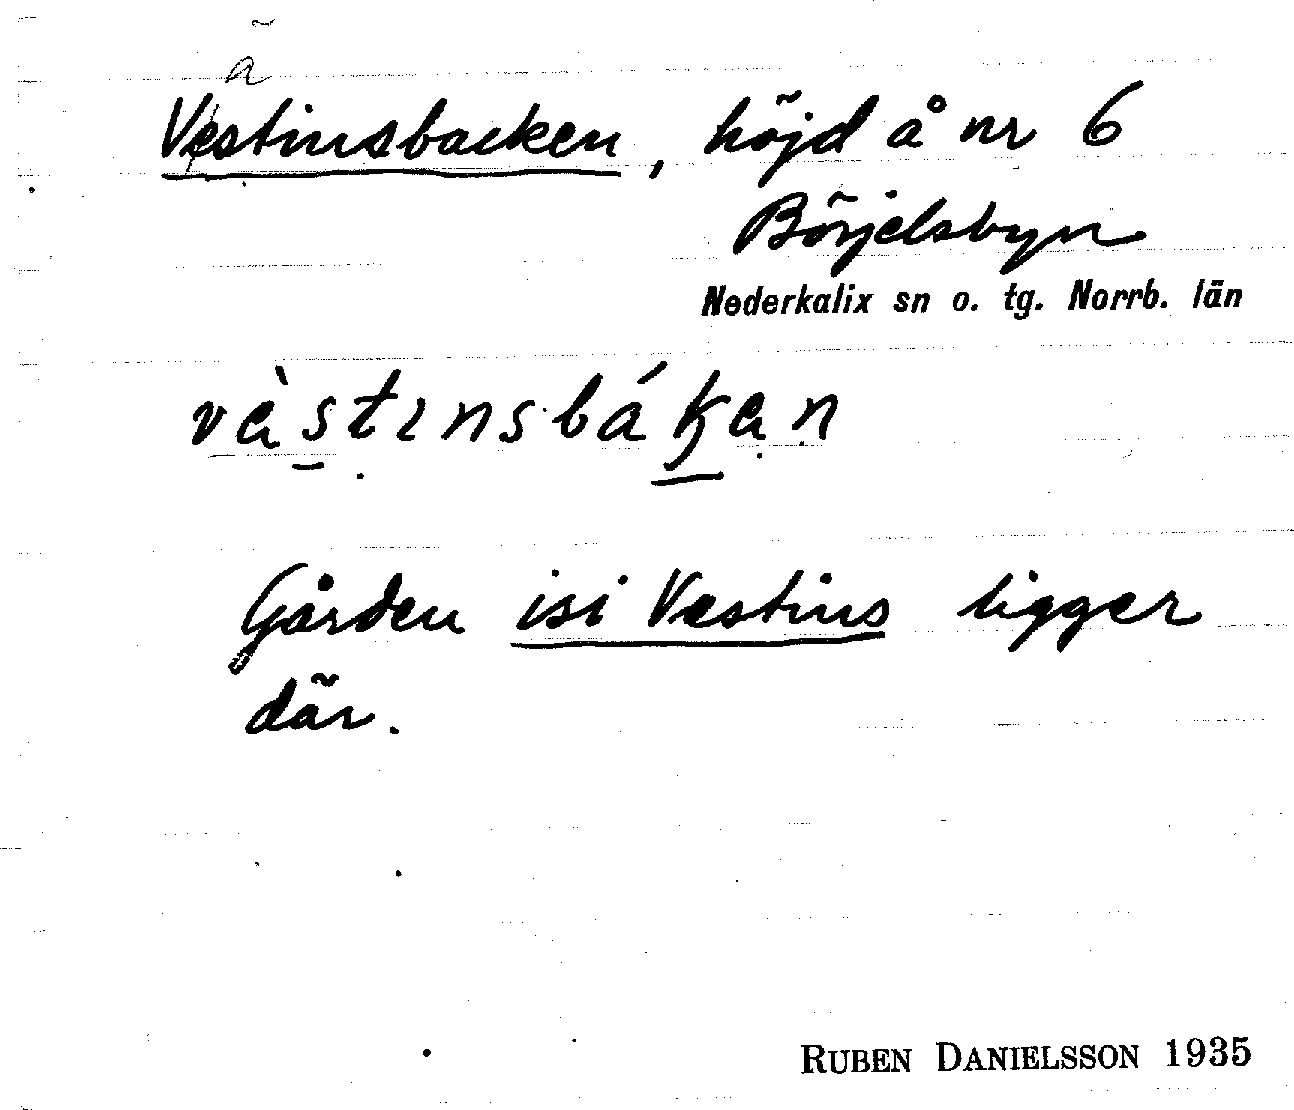 ä
Vestinsbacken, höjd å nr 6
Börjelsbyn
Nederkalix sn o. tg. Norrb. län
vàstınsbákan
Gården isi Vestins ligger
där.
RUBEN DANIELSSON 1935